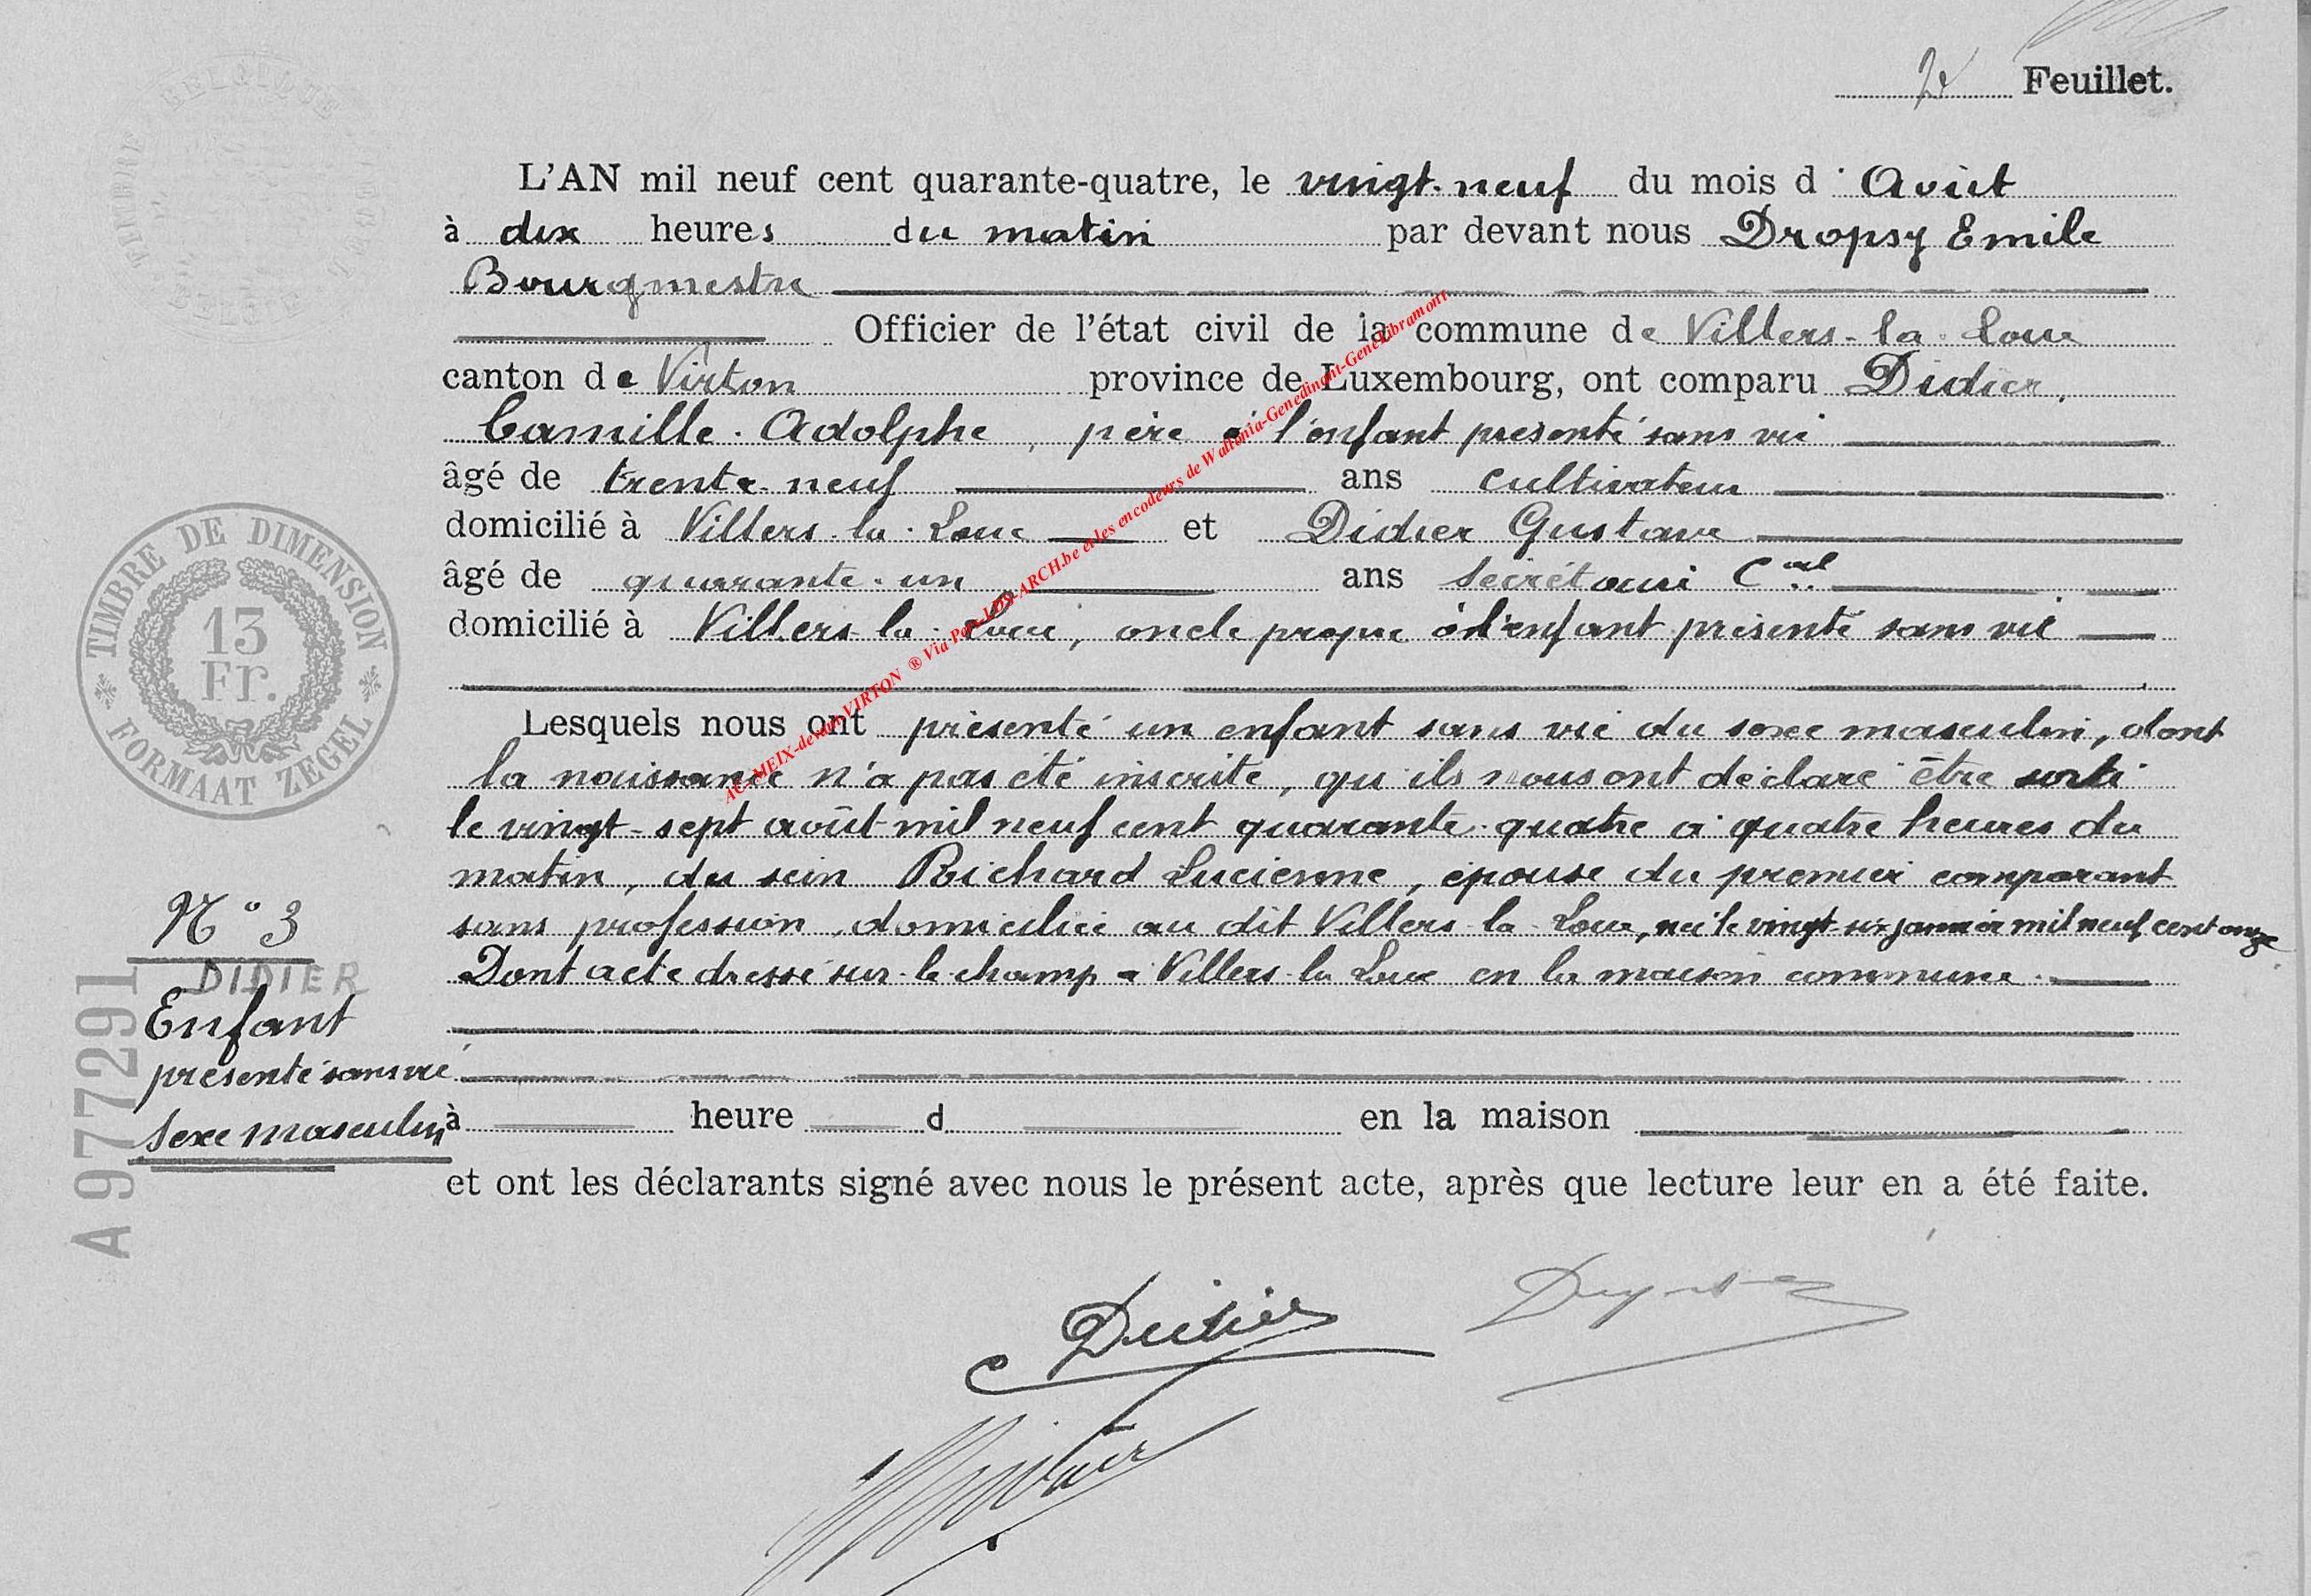 2e Feuillet.
L'AN mil neuf cent quarante-quatre, le vingt-neuf du mois d'Août
à dix heures du matin par devant nous Dropsy Emile
Bourgmestre
Officier de l'état civil de la commune de Villers-la-Loue
canton de Virton province de Luxembourg, ont comparu Didier,
Camille-Adolphe, père à l'enfant présenté sans vie
âgé de trente-neuf ans cultivateur
domicilié à Villers-la-Loue et Didier Gustave
âgé de quarante-un ans Secrétaire Cal
domicilié à Villers-la-Loue, oncle propre à l'enfant présenté sans vie
Lesquels nous ont présenté un enfant sans vie du sexe masculin, dont
la naissance n'a pas été inscrite, qu'ils nous ont déclaré être sorti
le vingt-sept août mil neuf cent quarante-quatre à quatre heures du
matin, du sein Richard Lucienne, épouse du premier comparant
sans profession, domiciliée au dit Villers-la-Loue, née le vingt-six janvier mil neuf cent onze
Dont acte dressé sur-le-champ à Villers-la-Loue en la maison commune.
à heure d en la maison
et ont les déclarants signé avec nous le présent acte, après que lecture leur en a été faite.
N° 3
DIDIER
Enfant
présenté sans vie
Sexe masculin
A 977291
TIMBRE DE DIMENSION
13
Fr.
FORMAAT ZEGEL
AC-MEIX-devant-VIRTON ® Via Pep's LDS-ARCH.be et les encodeurs de Wallonia-Genedinant-GeneLibramont
Didier
Dropsy